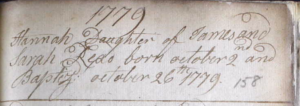 1779
Hannah Daughter of Jonas and
Sarah Redo born october 2nd and
Baptiz october 26th 1779 158